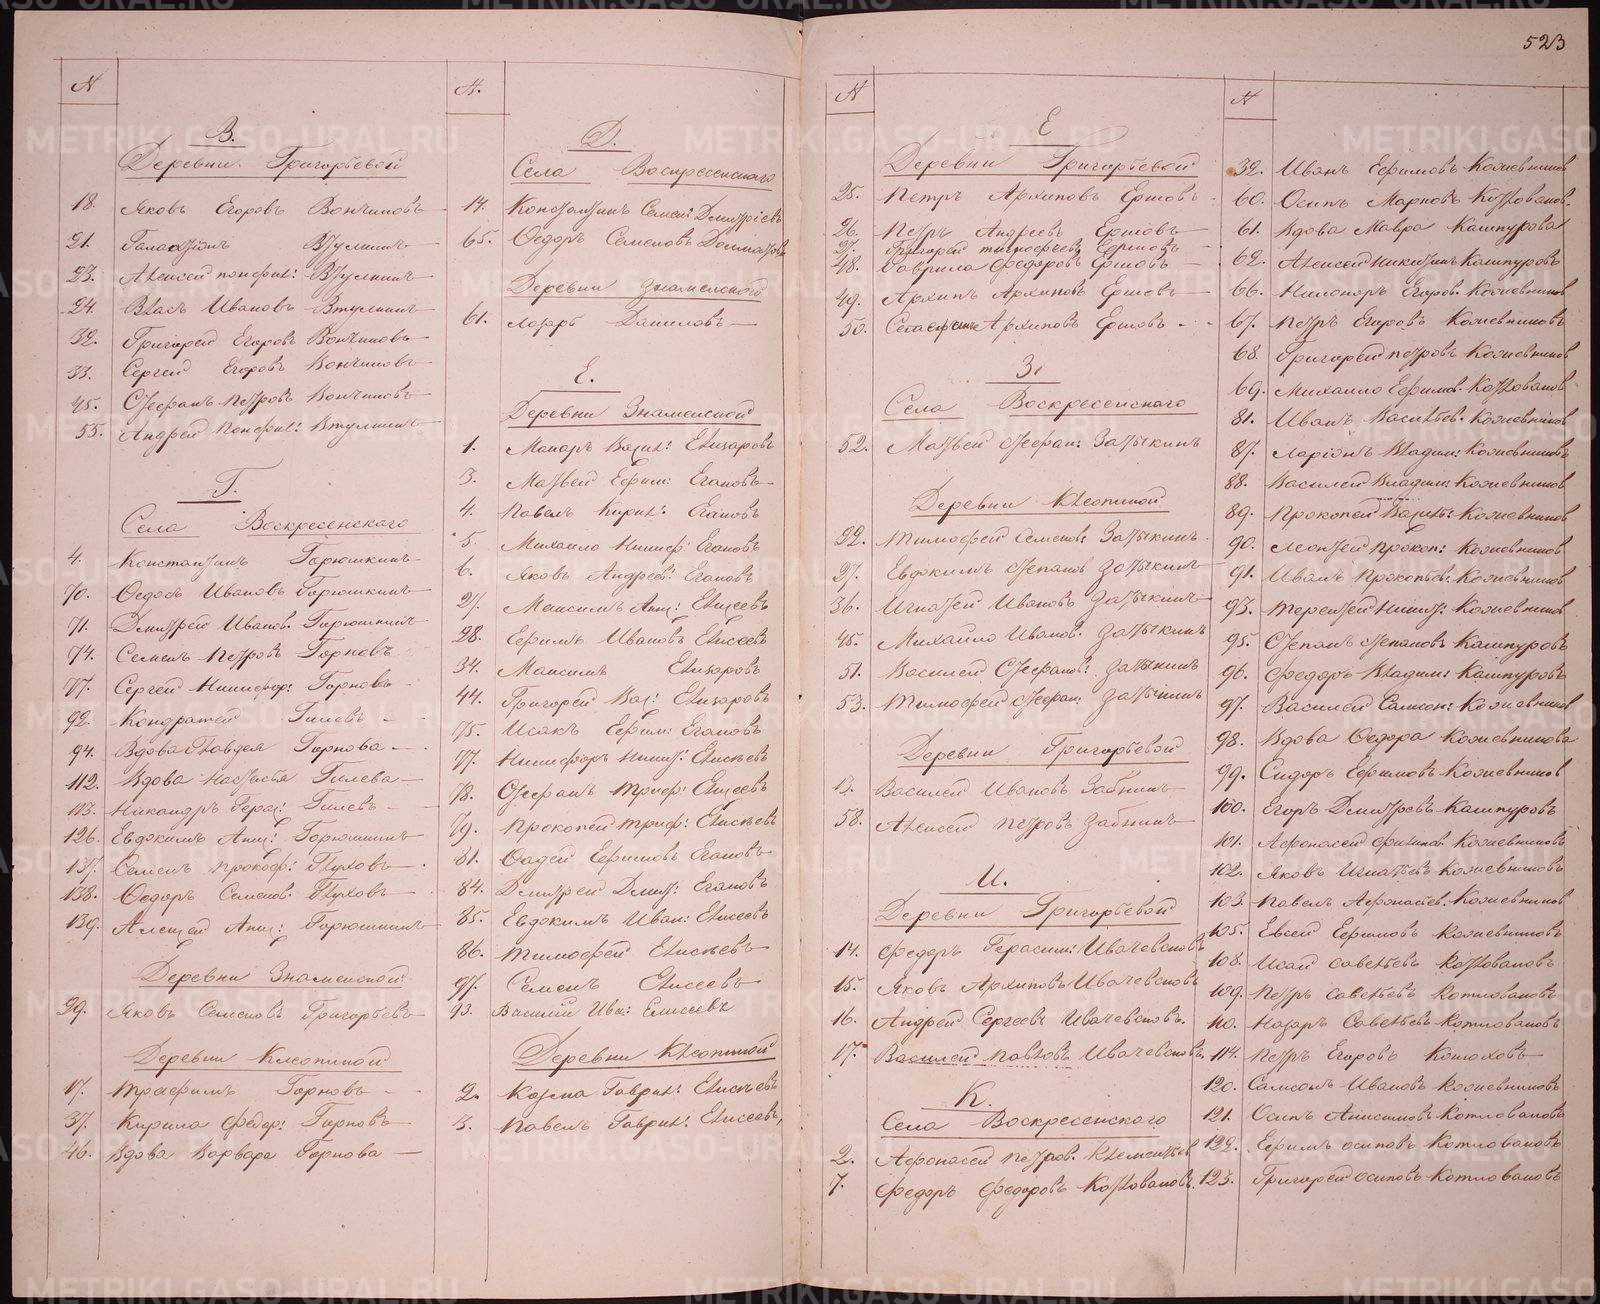 523
№
В.
Деревни Григорьевой
18. Яковъ Егоровъ Вончиновъ
21. Галактіонъ Втулкинъ
23. Алексей Понфил: Втулкинъ
24. Власъ Ивановъ Втулкинъ
32. Григорей Егоровъ Вончиновъ
33. Сергей Егоровъ Вончиновъ
45. Стефанъ Петровъ Вончиновъ
55. Андрей Понфил: Втулкинъ
Г.
Села Воскресенскаго
4. Константинъ Горюшкинъ
70. Ѳедоръ Ивановъ Горюшкинъ
71. Дмитрей Иванов. Горюшкинъ
74. Семенъ Петровъ Горновъ
77. Сергей Никифор: Горновъ
92. Кондратей Гилевъ
94. Вдова Горнова
112. Вдова Настасья Гилева
113. Никандръ Герас: Гилевъ
126. Евдокимъ Ани: Горюшкинъ
137. Семенъ Прокоф: Глуховъ
138. Ѳедоръ Семенов. Глуховъ
139. Алексей Ани: Горюшкинъ
Деревни Знаменской
29. Яковъ Семеновъ Григорьевъ
Деревни Клеопиной
17. Трофимъ Горновъ
37. Кирила Федор: Горновъ
46. Вдова Варвара Горнова
№.
Д.
Села Воскресенскаго
14. Константинъ Семен: Дмитріевъ
65. Ѳедоръ Семеновъ
Деревни Знаменской
61. Лазарь Даниловъ
Е.
Деревни Знаменской
1. Макаръ Васил: Елизаровъ
3. Матвей Ефим: Егановъ
4. Павелъ Кирил: Егановъ
5. Михаило Никиф: Егановъ
6. Яковъ Андреев: Егановъ
27. Максимъ Ани: Елисеевъ
28. Ефимъ Ивановъ Елисеевъ
34. Максимъ Елизаровъ
44. Григорей Вас: Елизаровъ
75. Исакъ Ефим: Егановъ
77. Никифоръ Никит: Елисеевъ
78. Стефанъ Триф: Елисеевъ
79. Прокопей Триф: Елисеевъ
81. Фадей Ефимовъ Егановъ
84. Дмитрей Дмит: Егановъ
85. Евдокимъ Иван: Елисеевъ
86. Тимофей Елисеевъ
97. Семенъ Елисеевъ
93. Василий Ива: Елисеевъ
Деревни Клеопиной
2. Козма Гаврил: Елисеевъ
3. Павелъ Гаврил: Елисеевъ
№
Е
Деревни Григорьевой
25. Петръ Архиповъ Ершовъ
26. Петръ Андреевъ Ершовъ
27. Григорей Тимофеевъ Ершовъ
48. Гаврила Федоровъ Ершовъ
49. Архипъ Архиповъ Ершовъ
50. Архиповъ Ершовъ
З.
Села Воскресенскаго
52. Матвей Стефан: Затыкинъ
Деревни Клеопиной
22. Тимофей Семенов: Затыкинъ
27. Евдокимъ Степанов Затыкинъ
36. Игнатей Ивановъ Затыкинъ
45. Михайло Иванов. Затыкинъ
51. Василей Стефанов: Затыкинъ
53. Тимофей Стефан: Затыкинъ
Деревни Григорьевой
13. Василей Ивановъ Забнинъ
58. Алексей Петровъ Забнинъ
И.
Деревни Григорьевой
14. Федоръ Герасим: Ивачевсковъ
15. Яковъ Архиповъ Ивачевсковъ
16. Андрей Сергеевъ Ивачевсковъ.
17. Василей Павловъ Ивачевсковъ.
К.
Села Воскресенскаго
2. Афонасей Петров. Клементьев
7. Федоръ Федоровъ Котловановъ.
№
32. Иванъ Ефимовъ Кожевников
60. Осипъ Марковъ Котлованов.
61. Вдова Мавра Кашпурова
62. Алексей Никитинъ Кашпуровъ
66. Никаноръ Егоров. Кожевников
67. Петръ Егоровъ Кожевниковъ
68. Григорей Петровъ Кожевников
69. Михаило Ефимов. Котлованов
81. Иванъ Васильев. Кожевников
87. Ларіонъ Владим: Кожевниковъ
88. Василей Владим: Кожевников
89. Прокопей Васил: Кожевников
90. Леонтей Прокоп: Кожевников
91. Иванъ Прокопьев. Кожевников
93. Терентей Никит: Кожевников
95. Степанъ Степановъ Кашпуровъ
96. Федоръ Владим: Кашпуровъ
97. Василей Самсон: Кожевников
98. Вдова Ѳедора Кожевникова
99. Сидоръ Ефимовъ Кожевников
100. Егоръ Дмитреевъ Кашпуровъ
101. Афонасей Филипов. Кожевниковъ
102. Яковъ Игнатьевъ Кожевниковъ
103. Павелъ Афонасьев. Кожевников
105. Евсей Ефимовъ Кожевниковъ
108. Исай Савельевъ Котловановъ
109. Петръ Савельевъ Котловановъ
110. Назаръ Савельевъ Котловановъ
114. Петръ Егоровъ Конюховъ
120. Самсонъ Ивановъ Кожевниковъ
121. Осипъ Анисимовъ Котловановъ
122. Ефимъ Осиповъ Котловановъ
123. Григорей Осиповъ Котловановъ
METRIKI.GASO-URAL.RU